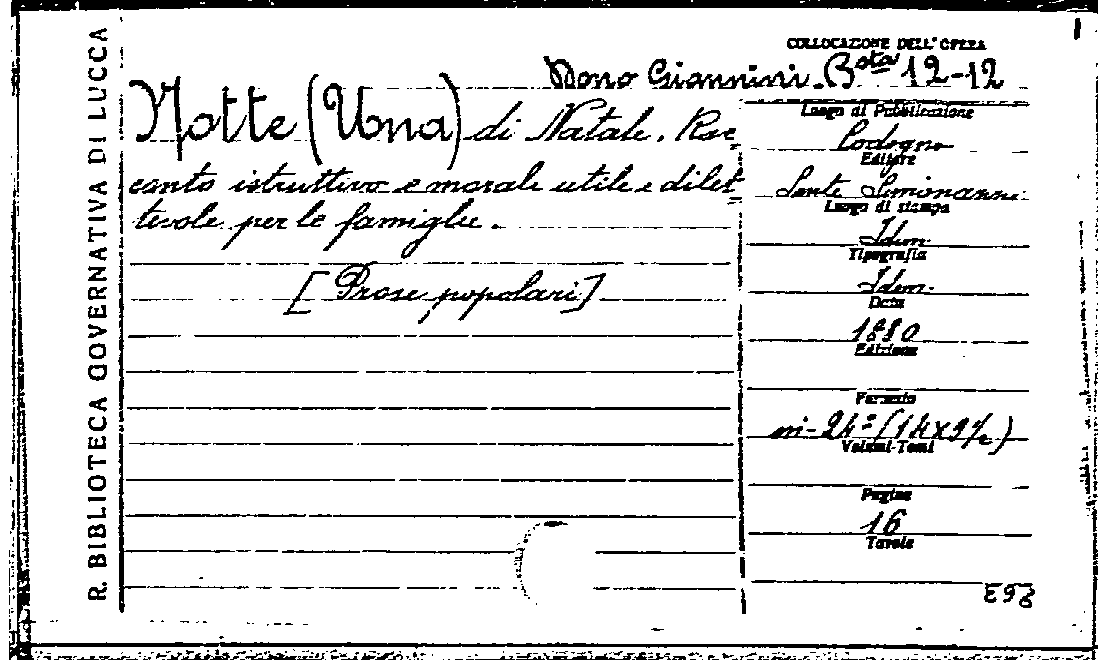 R. BIBLIOTECA GOVERNATIVA DI LUCCA
COLLOCAZIONE DELL'OPERA
Dono Giannini. Bsta 12-12
Notte (Una) di Natale. Rac=
conto istruttivo e morale utile e dilet=
tevole per le famiglie.
[Prose popolari]
Luogo di Pubblicazione
Codogno
Editore
Sante Simonanni
Luogo di stampa
Idem.
Tipografia
Idem.
Data
1880
Edizione
Formato
in-24º (14x9½)
Volumi-Tomi
Pagine
16
Tavole